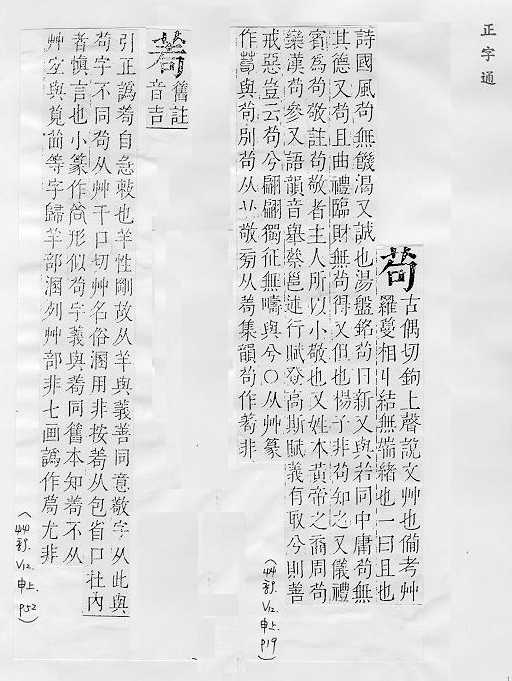 正字通
苟
古偶切鉤上聲說文艸也備考艸
羅蔓相丩結無端緒也一曰且也
詩國風苟無饑渴又誠也湯盤銘苟日新又與若同中庸苟無
其德又苟且曲禮臨財無苟得又但也楊子非苟知之又儀禮
賓爲苟敬註苟敬者主人所以小敬也又姓本黃帝之裔周苟
欒漢苟參又語韻音舉蔡邕述行賦登高斯賦義有取兮則善
戒惡豈云苟兮翩翩獨征無疇與兮○从艸篆
作與茍別茍从敬从茍集韻苟作非
舊註
音吉
引正譌茍自急敕也羊性剛故从羊與義善同意敬字从此與
苟字不同苟从艸干口切艸名俗溷用非按茍从包省口社內
者愼言也小篆作形似苟字義與茍同舊本知茍不从
艸空與莧苜等字歸羊部溷列艸部非七画譌作尤非
(艸部.
V12.
申上.
P19)
(艸部.
V12.
申上.
P52)